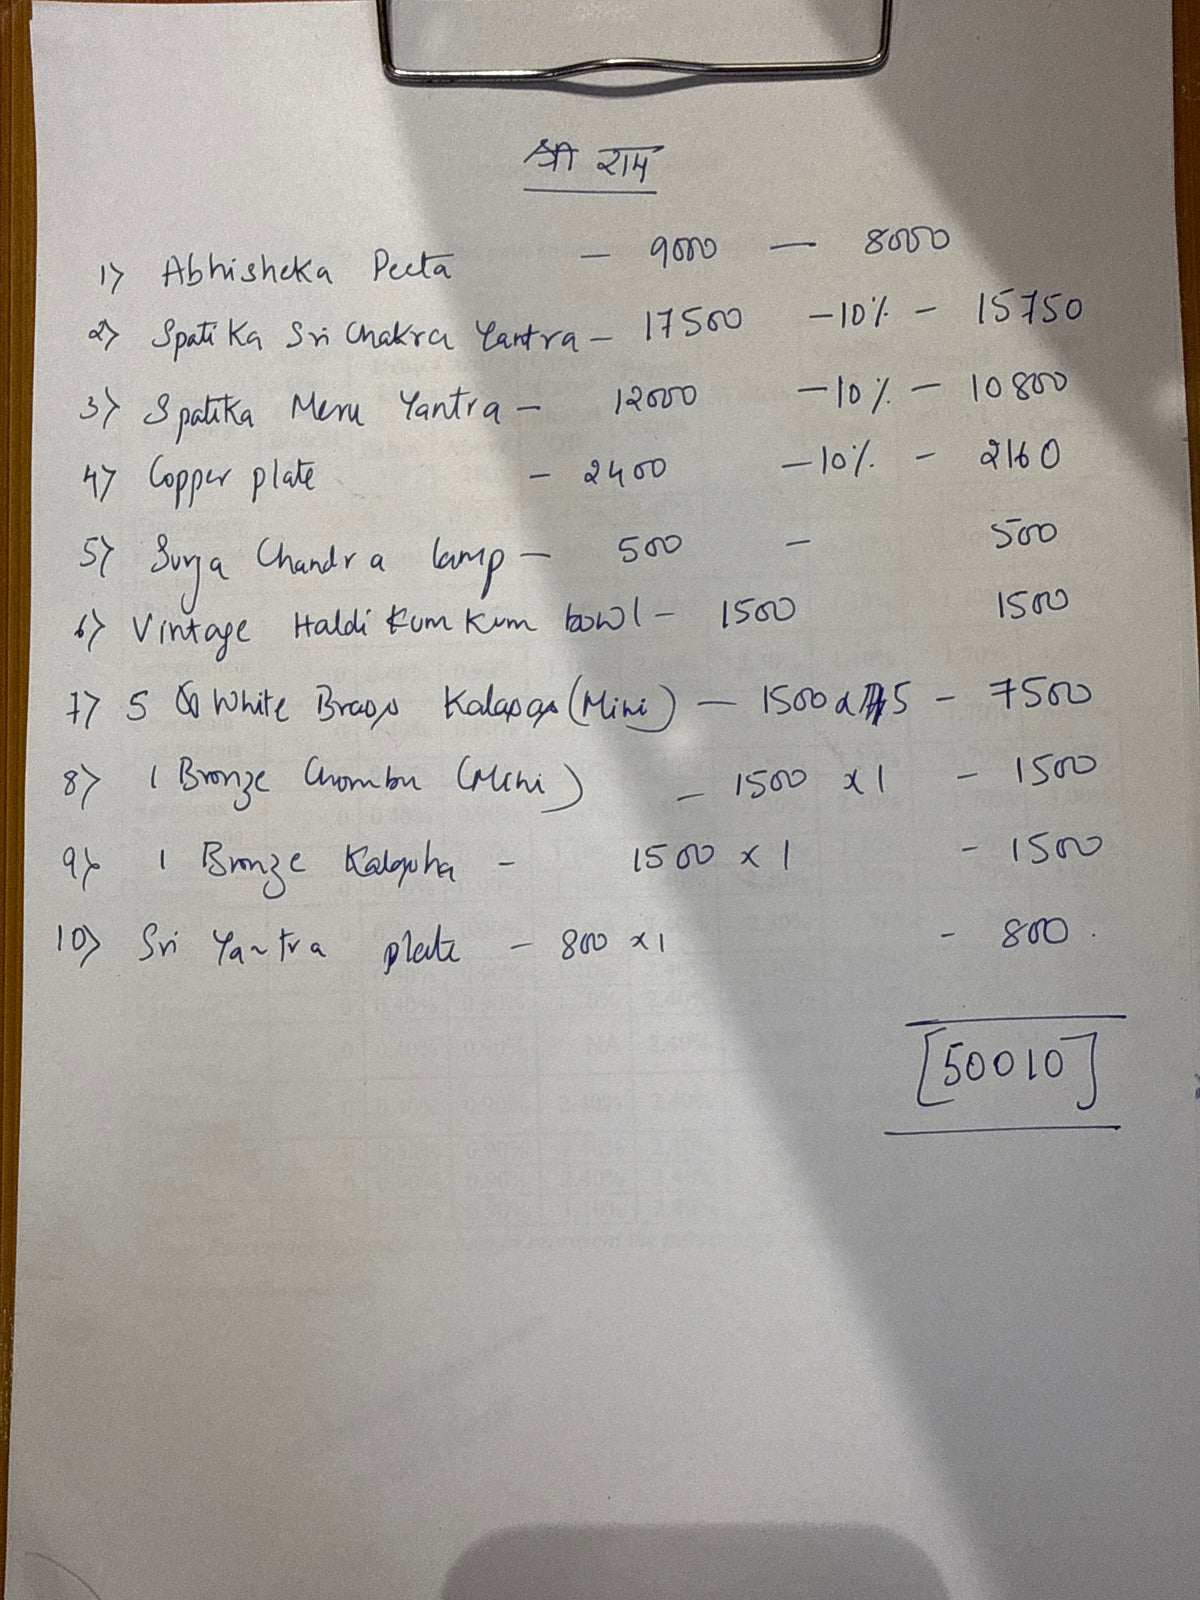 श्री राम
1> Abhisheka Peeta - 9000 - 8000
2> Spatika Sri Chakra Yantra - 17500 -10% - 15750
3> Spatika Meru Yantra - 12000 -10% - 10800
4> Copper plate - 2400 -10% - 2160
5> Surya Chandra lamp - 500 - 500
6> Vintage Haldi Kum Kum bowl - 1500 1500
7> 5 White Brass Kalasas (Mini) - 1500 x 5 - 7500
8> 1 Bronze Chombu (Mini) - 1500 x 1 - 1500
9> 1 Bronze Kalasha - 1500 x 1 - 1500
10> Sri Yantra plate - 800 x 1 - 800.
[50010]